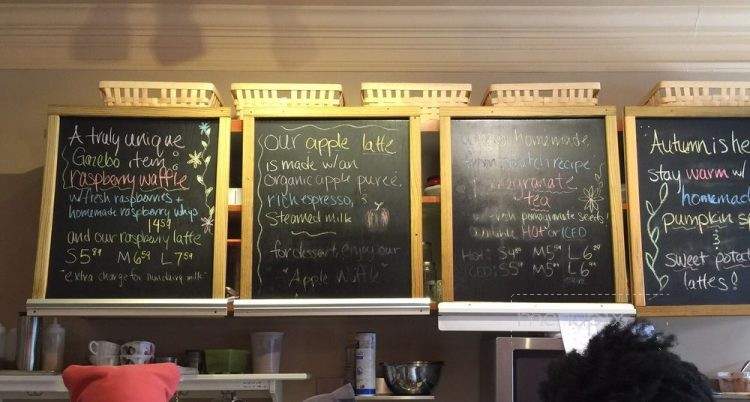 A truly unique
Gazebo item:
raspberry waffle
w/fresh raspberries +
homemade raspberry whip
14 59
and our raspberry latte
S 5 M 6 59 L 7 59
*extra charge for
milk*
our apple latte
is made w/ an
organic apple pureé,
rich espresso, &
steamed milk
for dessert, enjoy our
"Apple Waffle"
homemade
from scratch recipe
pomegranate
tea
w/ fresh pomegranate seeds!
available HOT or ICED
HOT: S 4 M 5 L 6
ICED: S 5 M 5 L 6
Autumn is he
stay warm w/
homemad
pumpkin sp
&
sweet potat
lattes!